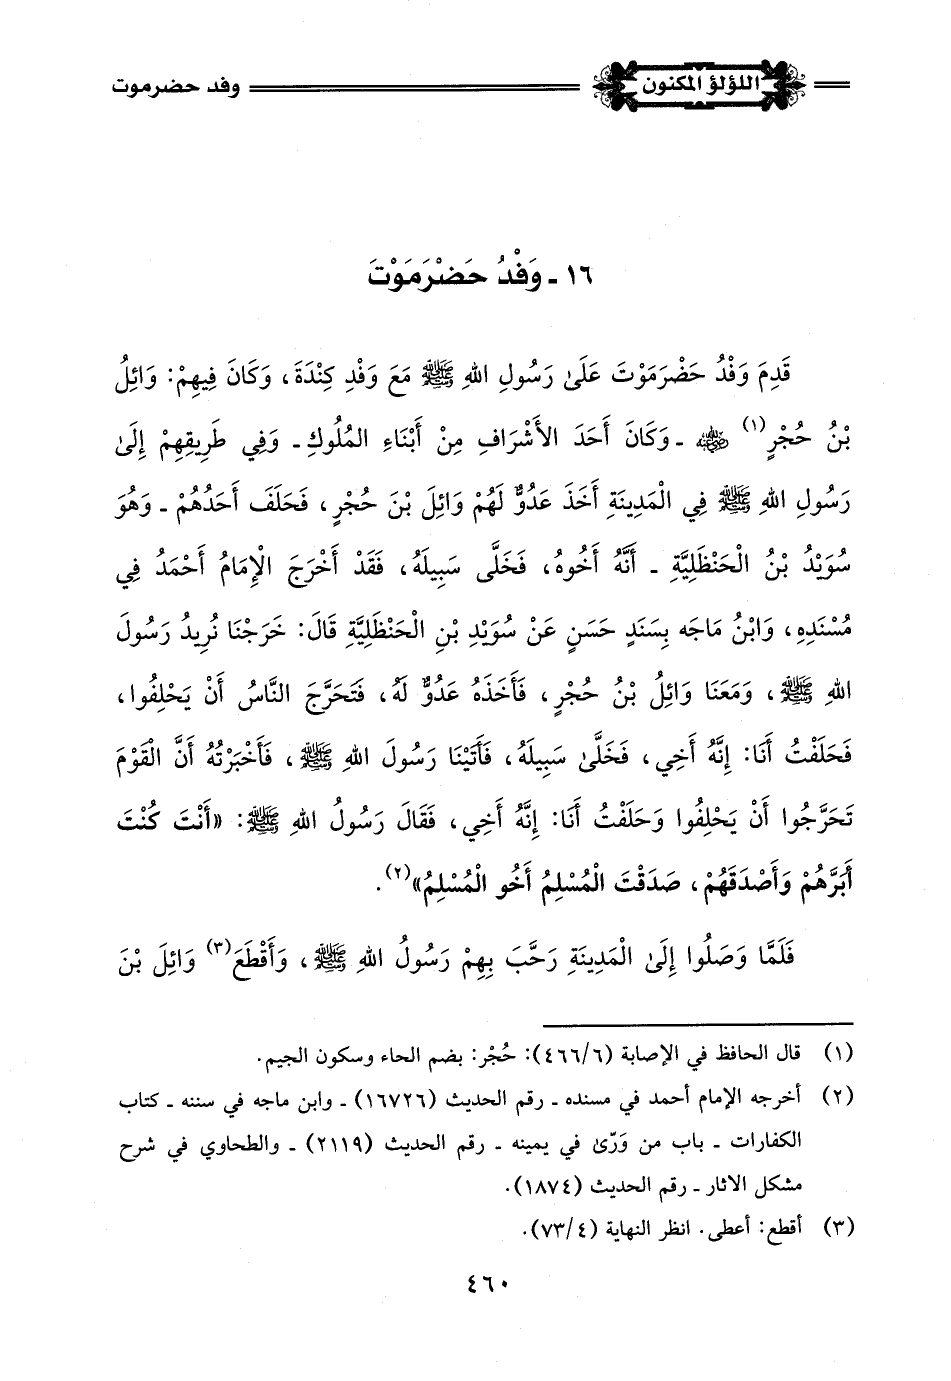 اللؤلؤ المكنون
وفد حضرموت
١٦ ـ وَفْدُ حَضْرَمَوْتَ
قَدِمَ وَفْدُ حَضْرَمَوْتَ عَلَىٰ رَسُولِ اللهِ ﷺ مَعَ وَفْدِ كِنْدَةَ، وَكَانَ فِيهِمْ: وَائِلُ
بْنُ حُجْرٍ(١) رضي الله عنه ـ وَكَانَ أَحَدَ الأَشْرَافِ مِنْ أَبْنَاءِ المُلُوكِ ـ وَفِي طَرِيقِهِمْ إِلَىٰ
رَسُولِ اللهِ ﷺ فِي الْمَدِينَةِ أَخَذَ عَدُوٌّ لَهُمْ وَائِلَ بْنَ حُجْرٍ، فَحَلَفَ أَحَدُهُمْ ـ وَهُوَ
سُوَيْدُ بْنُ الْحَنْظَلِيَّةِ ـ أَنَّهُ أَخُوهُ، فَخَلَّى سَبِيلَهُ، فَقَدْ أَخْرَجَ الْإِمَامُ أَحْمَدُ فِي
مُسْنَدِهِ، وَابْنُ مَاجَه بِسَنَدٍ حَسَنٍ عَنْ سُوَيْدِ بْنِ الْحَنْظَلِيَّةِ قَالَ: خَرَجْنَا نُرِيدُ رَسُولَ
اللهِ ﷺ، وَمَعَنَا وَائِلُ بْنُ حُجْرٍ، فَأَخَذَهُ عَدُوٌّ لَهُ، فَتَحَرَّجَ النَّاسُ أَنْ يَحْلِفُوا،
فَحَلَفْتُ أَنَا: إِنَّهُ أَخِي، فَخَلَّىٰ سَبِيلَهُ، فَأَتَيْنَا رَسُولَ اللهِ ﷺ، فَأَخْبَرْتُهُ أَنَّ الْقَوْمَ
تَحَرَّجُوا أَنْ يَحْلِفُوا وَحَلَفْتُ أَنَا: إِنَّهُ أَخِي، فَقَالَ رَسُولُ اللهِ ﷺ: «أَنْتَ كُنْتَ
أَبَرَّهُمْ وَأَصْدَقَهُمْ، صَدَقْتَ الْمُسْلِمُ أَخُو الْمُسْلِمُ»(٢).
فَلَمَّا وَصَلُوا إِلَىٰ الْمَدِينَةِ رَحَّبَ بِهِمْ رَسُولُ اللهِ ﷺ، وَأَقْطَعَ(٣) وَائِلَ بْنَ
(١) قال الحافظ في الإصابة (٤٦٦/٦): حُجْر: بضم الحاء وسكون الجيم.
(٢) أخرجه الإمام أحمد في مسنده ـ رقم الحديث (١٦٧٢٦) ـ وابن ماجه في سننه ـ كتاب
الكفارات ـ باب من وَرّىٰ في يمينه ـ رقم الحديث (٢١١٩) ـ والطحاوي في شرح
مشكل الاثار ـ رقم الحديث (١٨٧٤).
(٣) أقطع: أعطى. انظر النهاية (٧٣/٤).
٤٦٠